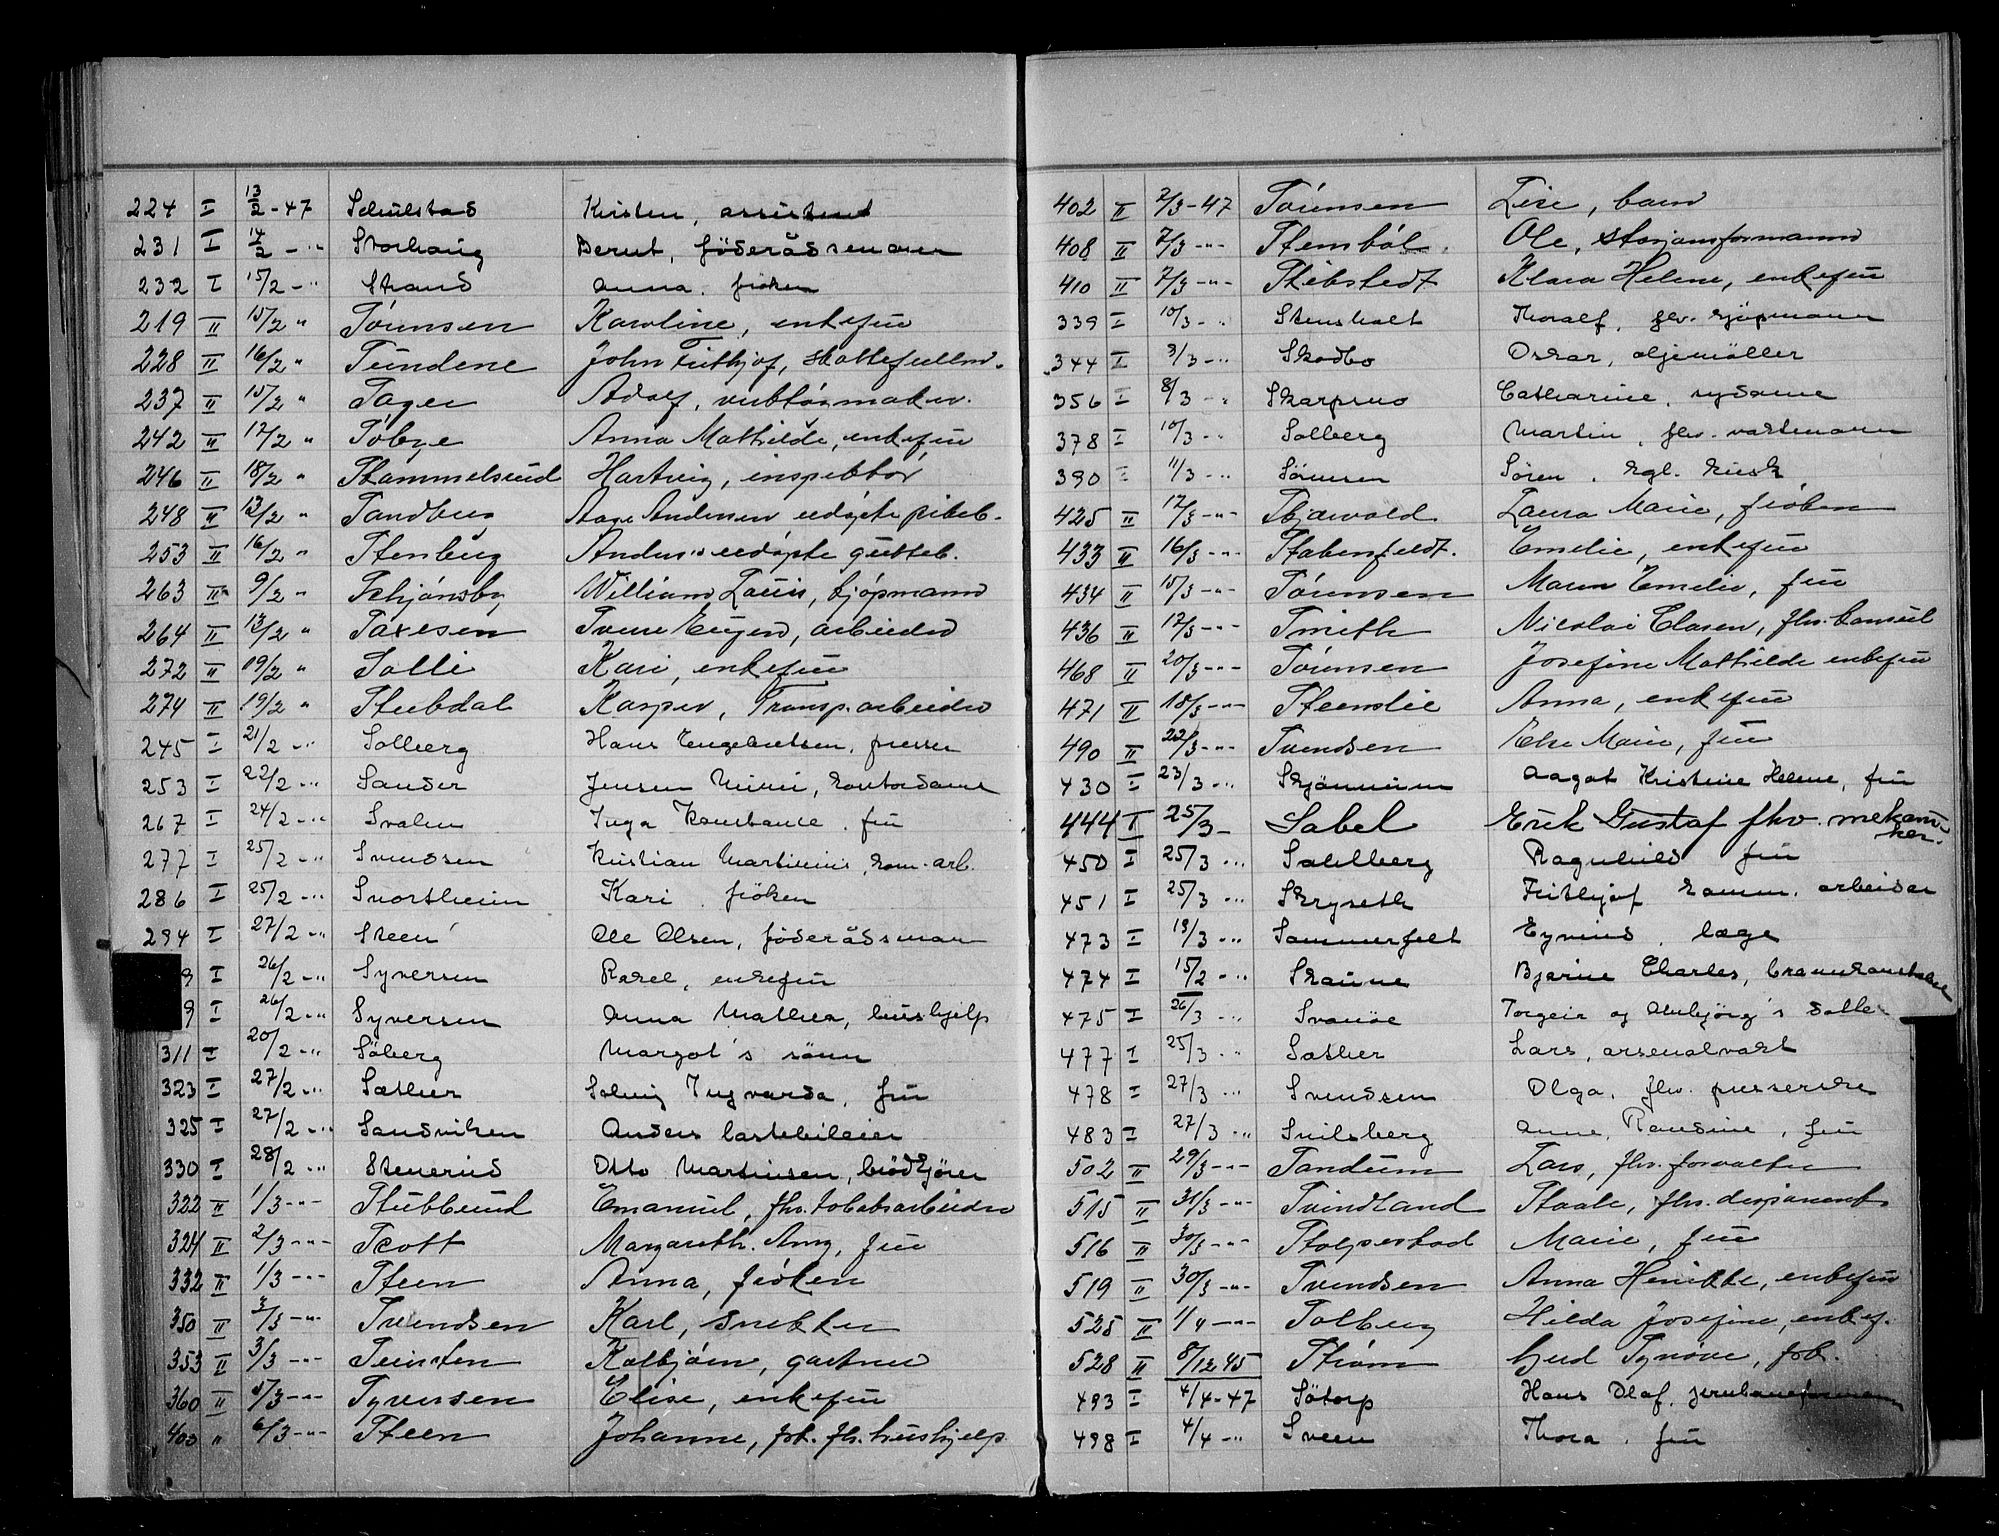 224 I 13/2 - 47 Schulstad Kirsten, assistent
231 I 14/2 - " Storhaug Bernt, föderådsmann
232 I 15/2 - " Strand Anna, frøken
219 II 15/2 " Sørensen Karoline, enkefru
228 II 16/2 " Sundene John Fritjof, skattefullm.
237 II 15/2 " Sager Adolf, verktøymaker.
242 II 17/2 " Sobye Anna Mathilde, enkefru
246 II 18/2 " Stammelsrud Hartvig, inspektør
248 II 13/2 " Sandberg Aage Andersen udøpte pikeb.
253 II 16/2 " Stenberg Anders's udøpte gutteb.
263 II 9/2 " Schjønsby William Louis, kjøpmann
264 II 13/2 " Saxesen Sverre Eugen, arbeider
272 II 19/2 " Solli Kari, enkefru
274 II 19/2 " Stubdal Kasper, Transp.arbeider
245 I 21/2 - " Solberg Hans Engebretsen, presser
253 I 22/2 - " Sander Jensen Mimi, kontordame
267 I 24/2 - " Svalen Inga Konstanse, fru
277 I 25/2 - " Svendsen Kristian Martinius, kom.arb.
286 I 25/2 - " Snortheim Kari, frøken
294 I 27/2 - " Steen Ole Olsen, föderådsman
8 I 26/2 - " Syversen Rakel, enkefru
9 I 26/2 - " Syversen Anna Mathea, hushjelp
311 I 20/2 - " Söberg Margot's sønn
323 I 27/2 - " Sæther Solveig Ingvarda, fru
325 I 27/2 - " Sandviken Anders lastebileier
330 I 28/2 - " Stenerud Otto Martinsen, brødkjører
322 II 1/3 - " Stubberud Emanuel, fhv. tobaksarbeider
324 II 2/3 - " Scott Margareth Amy, fru
332 II 1/3 - " Steen Anna, frøken
350 II 3/3 - " Svendsen Karl, snekker
353 II 3/3 - " Seinsten Kolbjørn, gartner
360 II 5/3 - " Syversen Elise, enkefru
400 " 6/3 - " Steen Johanne, frk. fh. hushjelp
402 II 7/3 - 47 Sørensen Lise, barn
408 II 7/3 - " Stensbøl Ole, stasjonsformann
410 II 7/3 - " Stibstedt Klara Helene, enkefru
339 I 10/3 - " Stensholt Thoralf, fhv. kjøpmann
344 I 9/3 - " Skodbo Oskar, oljemöller
356 I 8/3 - " Skarpsno Catharine, sydame
378 I 10/3 - " Solberg Martin, fhv. vaktmann
390 I 11/3 - " Sörensen Sören, kgl. kusk
425 II 12/3 - " Skjævold Laura Marie, frøken
433 II 16/3 - " Stabenfeldt. Emelie, enkefru
434 II 15/3 - " Sørensen Maren Emelie, fru
436 II 17/3 - " Smith Nicolai Clasen, fhv. konsul
468 II 20/3 - " Sørensen Josefine Mathilde enkefru
471 II 18/3 - " Steenslie Anna, enkefru
490 II 22/3 - " Svendsen Else Marie, fru
430 I 23/3 - " Skjønneum Aagot Kristine Helene, fru
444 I 25/3 - Sabel Erik Gustaf fhv. mekaniker.
450 I 25/3 - " Sahlberg Ragnhild fru
451 I 25/3 - " Skryseth Frithjof komm. arbeider
473 I 19/3 - " Sommerfelt Eyvind, læge
474 I 15/2 - " Skaune Bjarne Charles, brannkonstabel
475 I 26/3 - " Svanøe Torgeir og Ambjörg's datter
477 I 25/3 - " Sæther Lars, arsenalvakt
478 I 27/3 - " Svendsen Olga, fhv. presserske
483 I 27/3 - " Snilsberg Anne, Randine, fru
502 II 29/3 - " Sandum Lars, fhv. forvalter
515 II 31/3 - " Svindland Staale, fhv. disponent
516 II 30/3 - " Stolpestad Marie, fru
519 II 30/3 - " Svendsen Anna Henrikke, enkefru
525 II 1/4 - " Solberg Hilda Josefine, enkef.
528 II 8/12 45 Strøm Gjerd Synøve, frk.
493 I 4/4 - 47 Sötorp Hans Olaf, jernbaneformann
498 I 4/4 - " Sveen Thora, fru